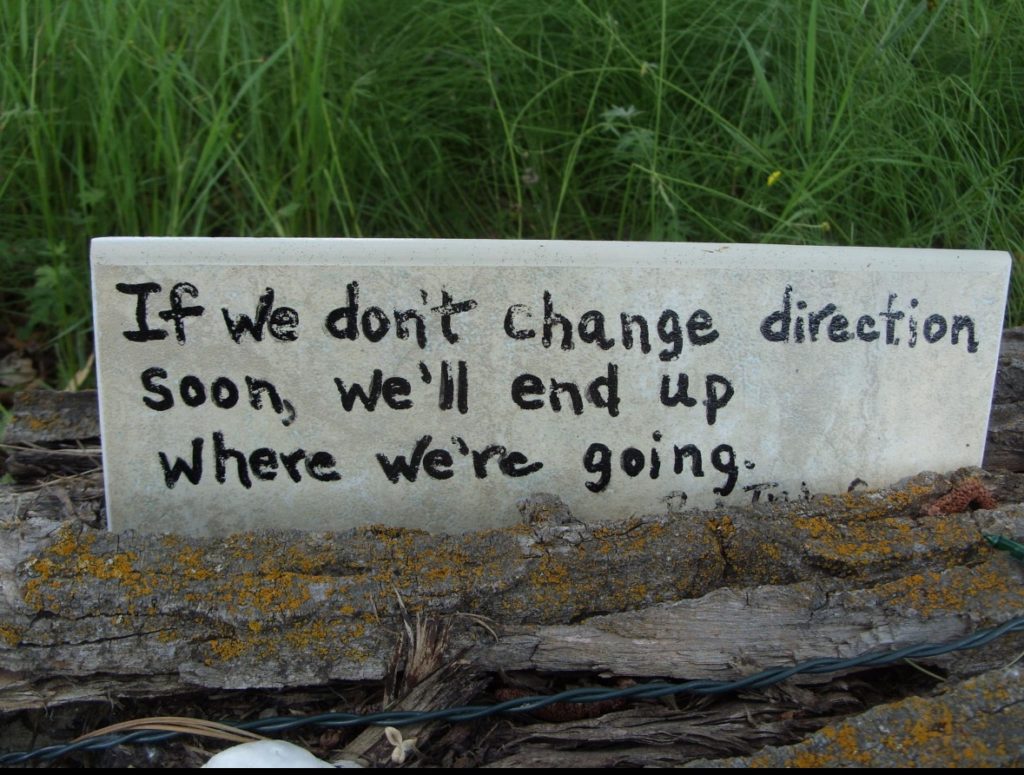 If we don't change direction
soon, we'll end up
where we're going.